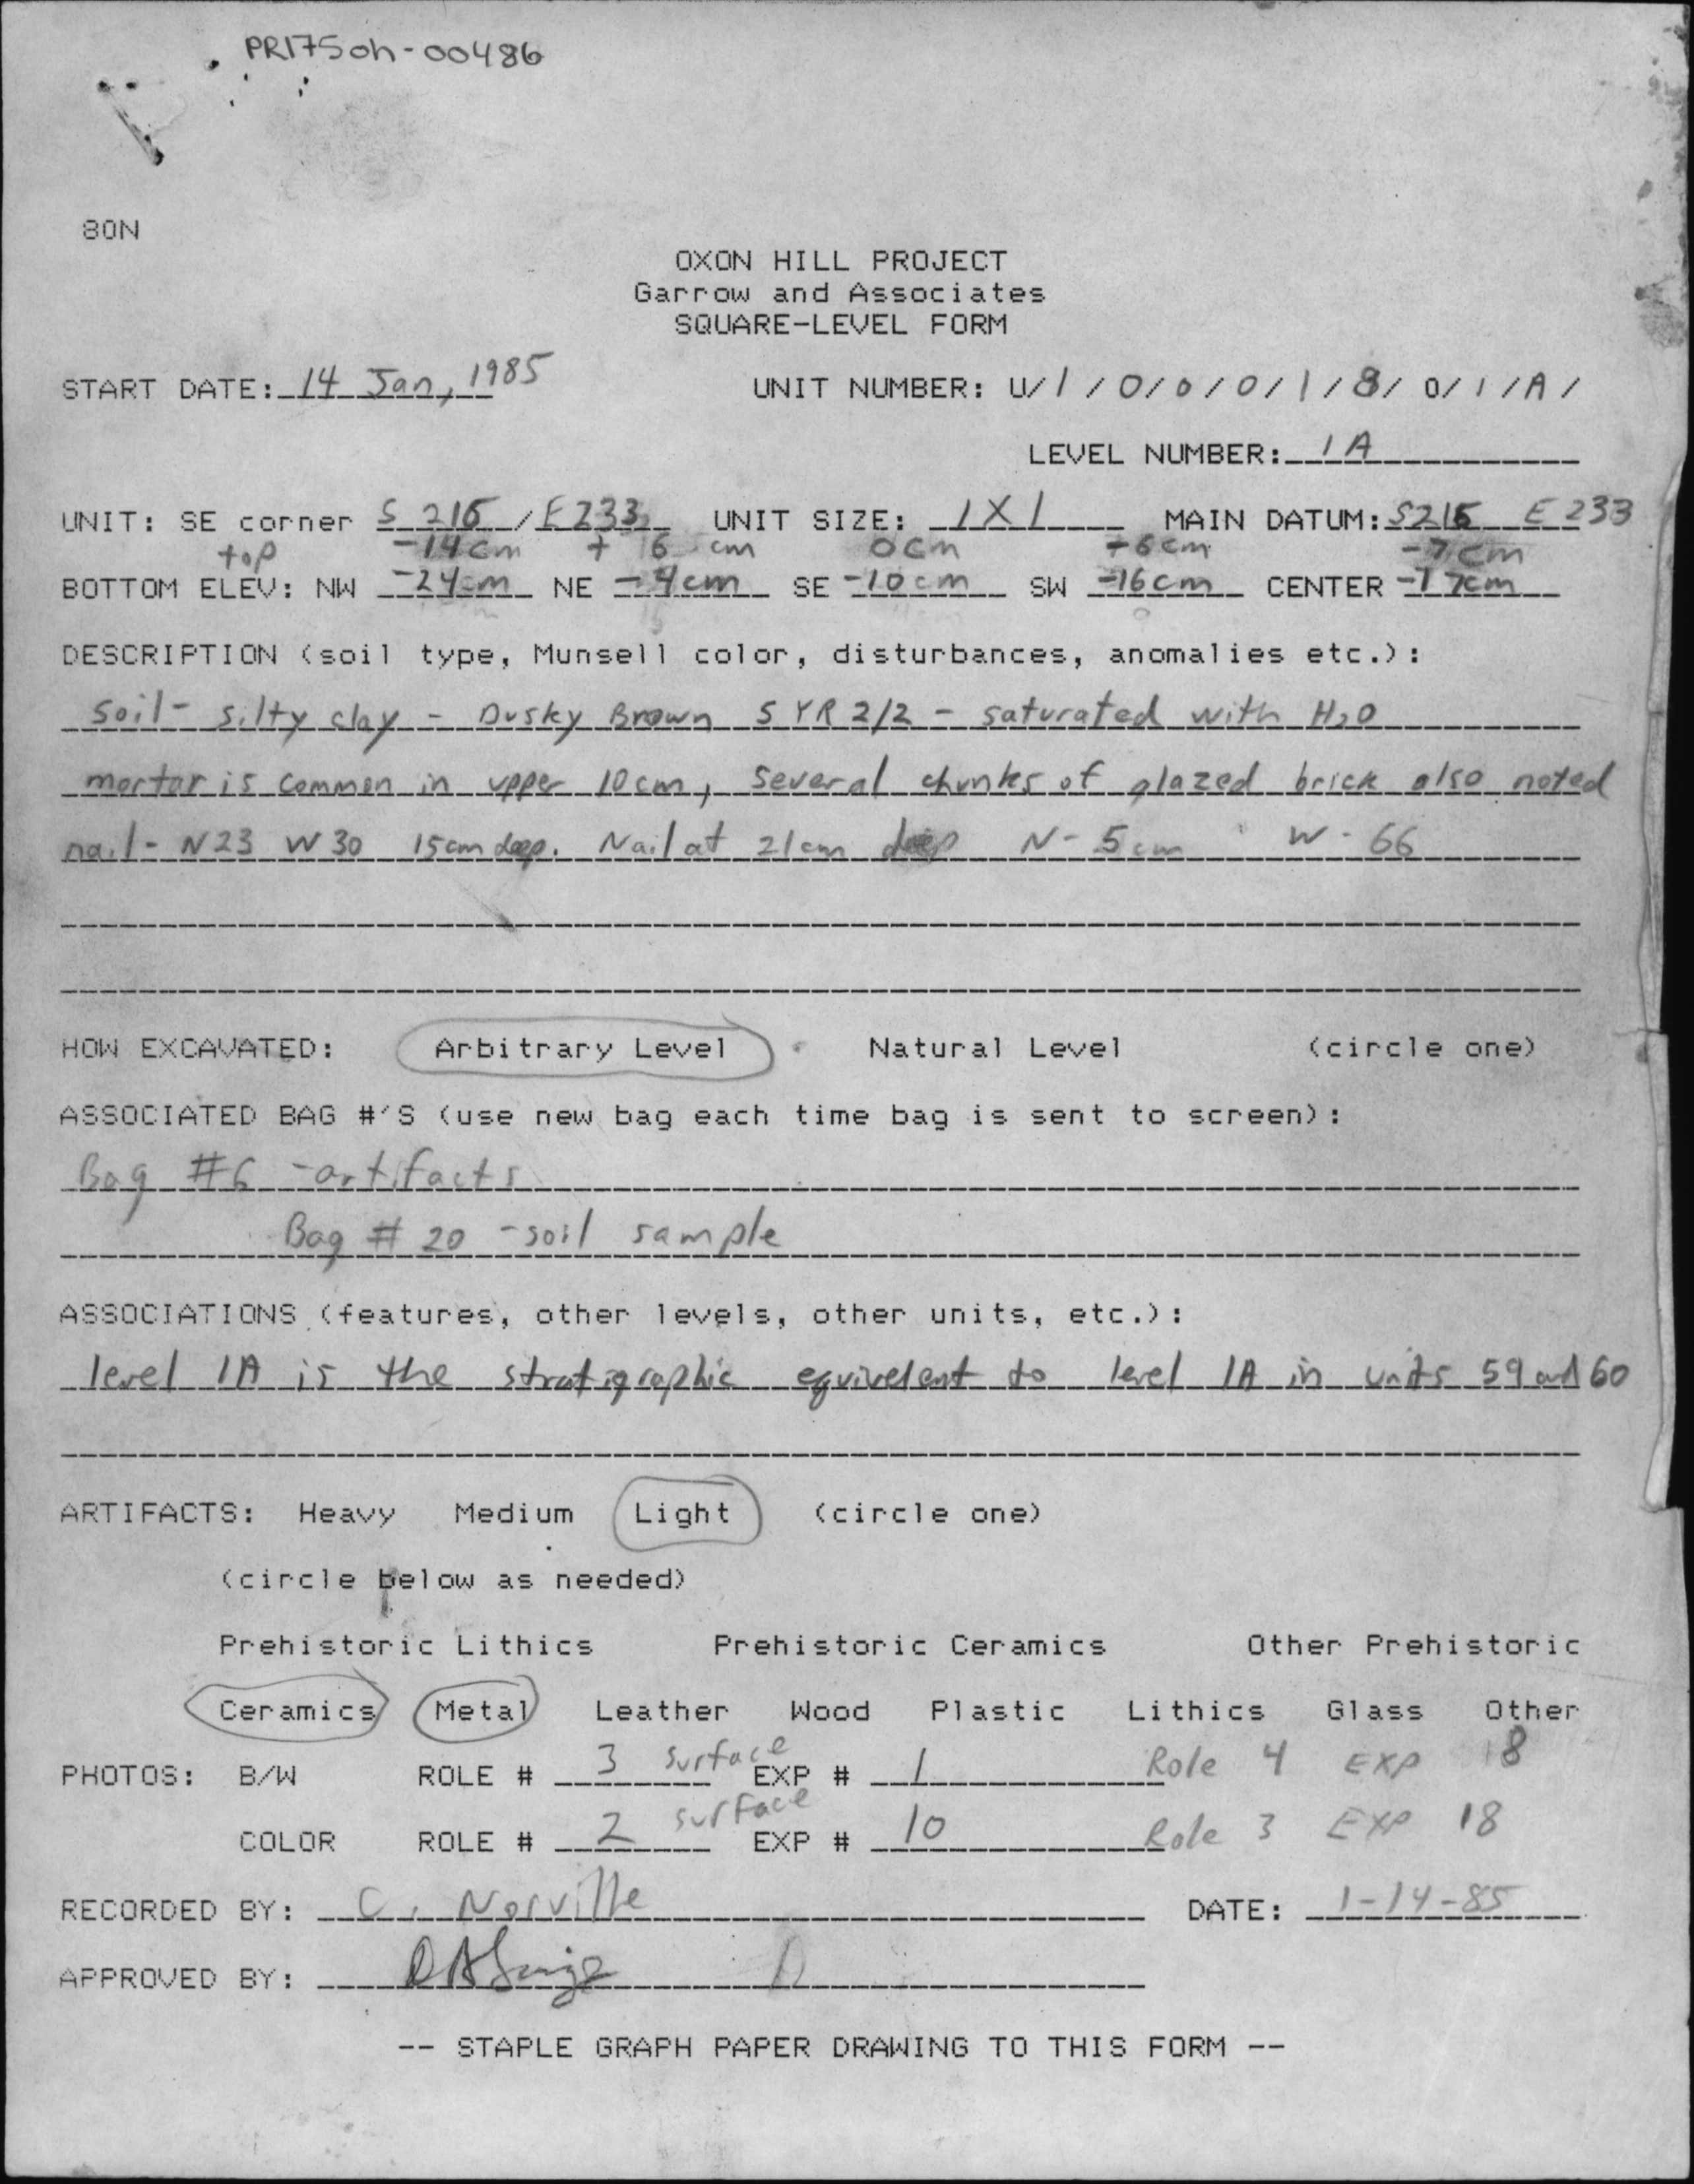 PR175oh-00486
80N
OXON HILL PROJECT
Garrow and Associates
SQUARE-LEVEL FORM
START DATE: 14 Jan, 1985 UNIT NUMBER: U/1/0/0/0/1/8/0/1/A/
LEVEL NUMBER: 1A
UNIT: SE corner S 216 / E 233 UNIT SIZE: 1X1 MAIN DATUM: S216 E 233
top -14cm + 6 cm 0cm -6cm -7cm
BOTTOM ELEV: NW -24cm NE -4cm SE -10cm SW -16cm CENTER -17cm
DESCRIPTION (soil type, Munsell color, disturbances, anomalies etc.):
soil- silty clay - Dusky Brown 5 YR 2/2 - saturated with H2O
mortar is common in upper 10cm, several chunks of glazed brick also noted
nail- N23 W30 15cm deep. Nail at 21cm deep N- 5cm W- 66
HOW EXCAVATED: Arbitrary Level Natural Level (circle one)
ASSOCIATED BAG #'S (use new bag each time bag is sent to screen):
Bag #6 -artifacts
Bag # 20 -soil sample
ASSOCIATIONS (features, other levels, other units, etc.):
level 1A is the stratigraphic equivelent to level 1A in units 59 and 60
ARTIFACTS: Heavy Medium Light (circle one)
(circle below as needed)
Prehistoric Lithics Prehistoric Ceramics Other Prehistoric
Ceramics Metal Leather Wood Plastic Lithics Glass Other
PHOTOS: B/W ROLE # 3 surface EXP # 1 Role 4 EXP 18
COLOR ROLE # 2 surface EXP # 10 Role 3 EXP 18
RECORDED BY: C. Norville DATE: 1-14-85
APPROVED BY:
-- STAPLE GRAPH PAPER DRAWING TO THIS FORM --